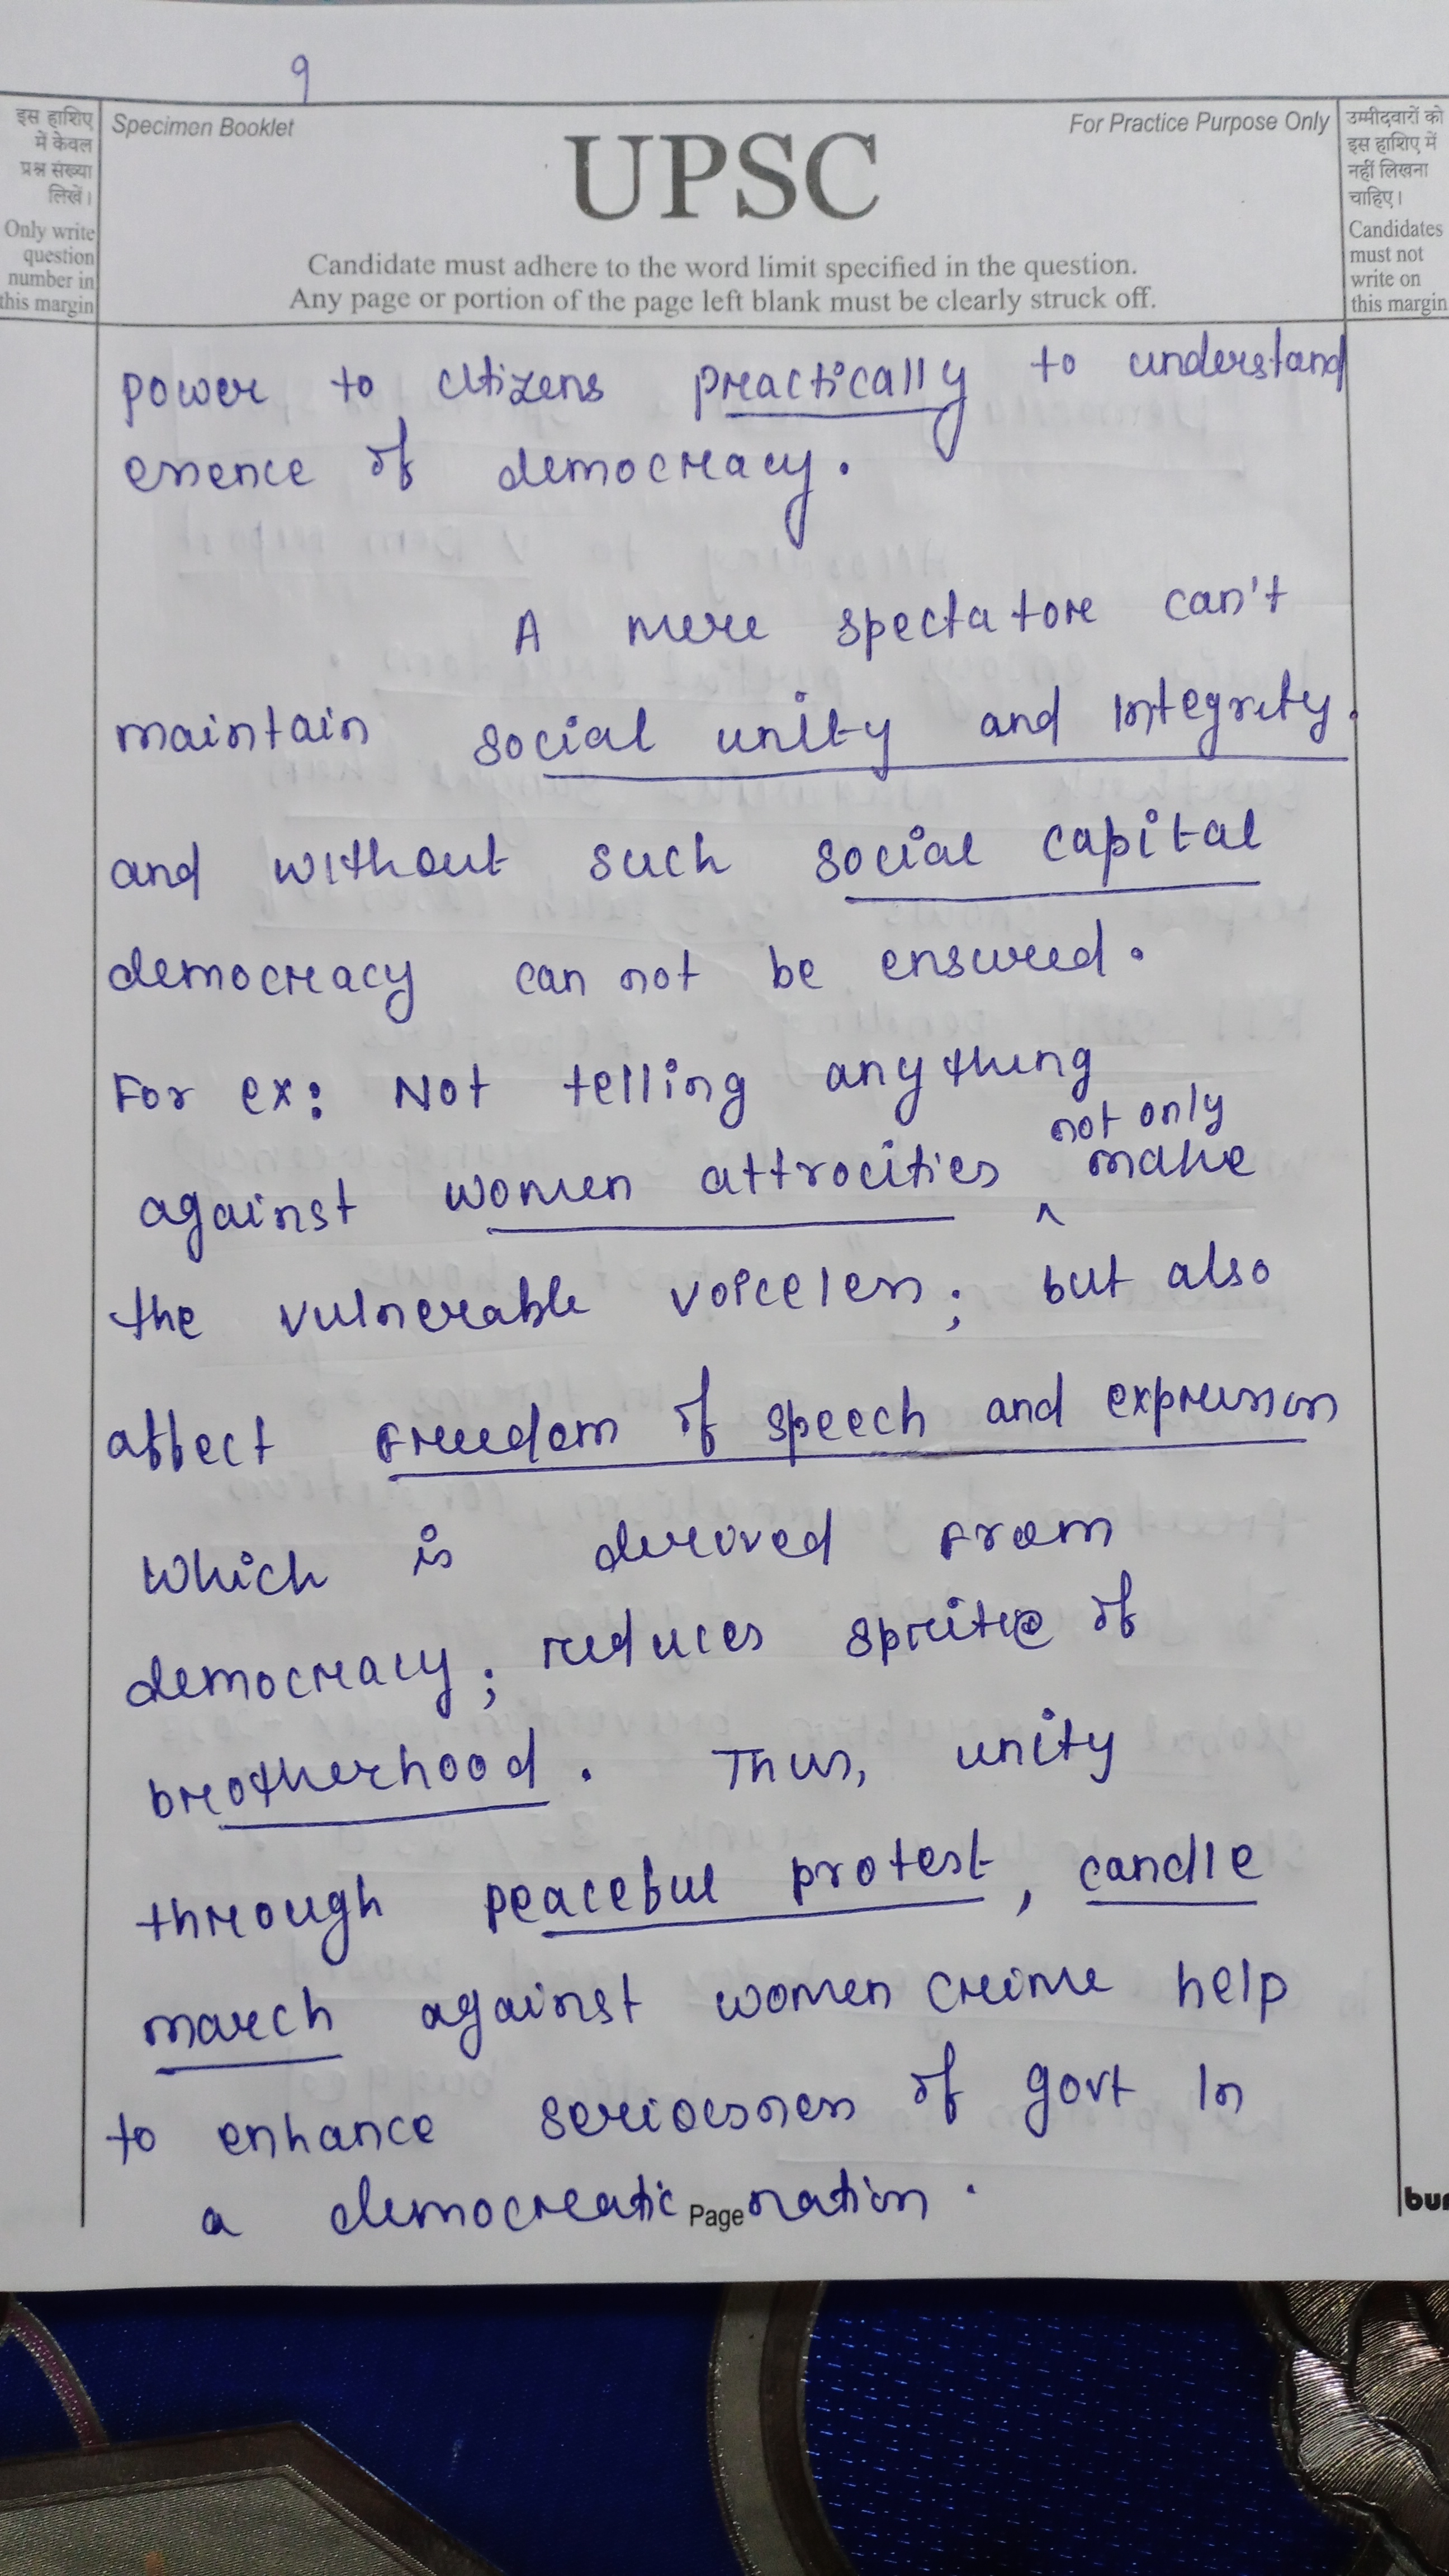 9
इस हाशिए
में केवल
प्रश्न संख्या
लिखें।
Only write
question
number in
this margin
Specimen Booklet
UPSC
For Practice Purpose Only
Candidate must adhere to the word limit specified in the question.
Any page or portion of the page left blank must be clearly struck off.
उम्मीदवारों को
इस हाशिए में
नहीं लिखना
चाहिए।
Candidates
must not
write on
this margin
power to citizens practically to understand
essence of democracy.
A mere spectator can't
maintain social unity and integrity.
and without such social capital
democracy can not be ensured.
For ex: Not telling anything
not only
against women attrocities ^ make
the vulnerable voiceless; but also
affect freedom of speech and expression
which is derived from
democracy; reduces spirit of
brotherhood. Thus, unity
through peaceful protest, candle
march against women crime help
to enhance seriousness of govt in
a democratic nation.
Page